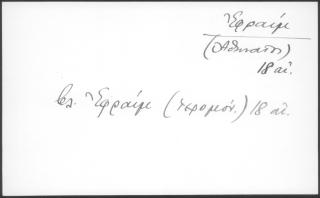 Ἐφραίμ
(Ἀθηναῖος)
18 αἰ.
βλ. Ἐφραίμ (ἱερομόν.) 18 αἰ.